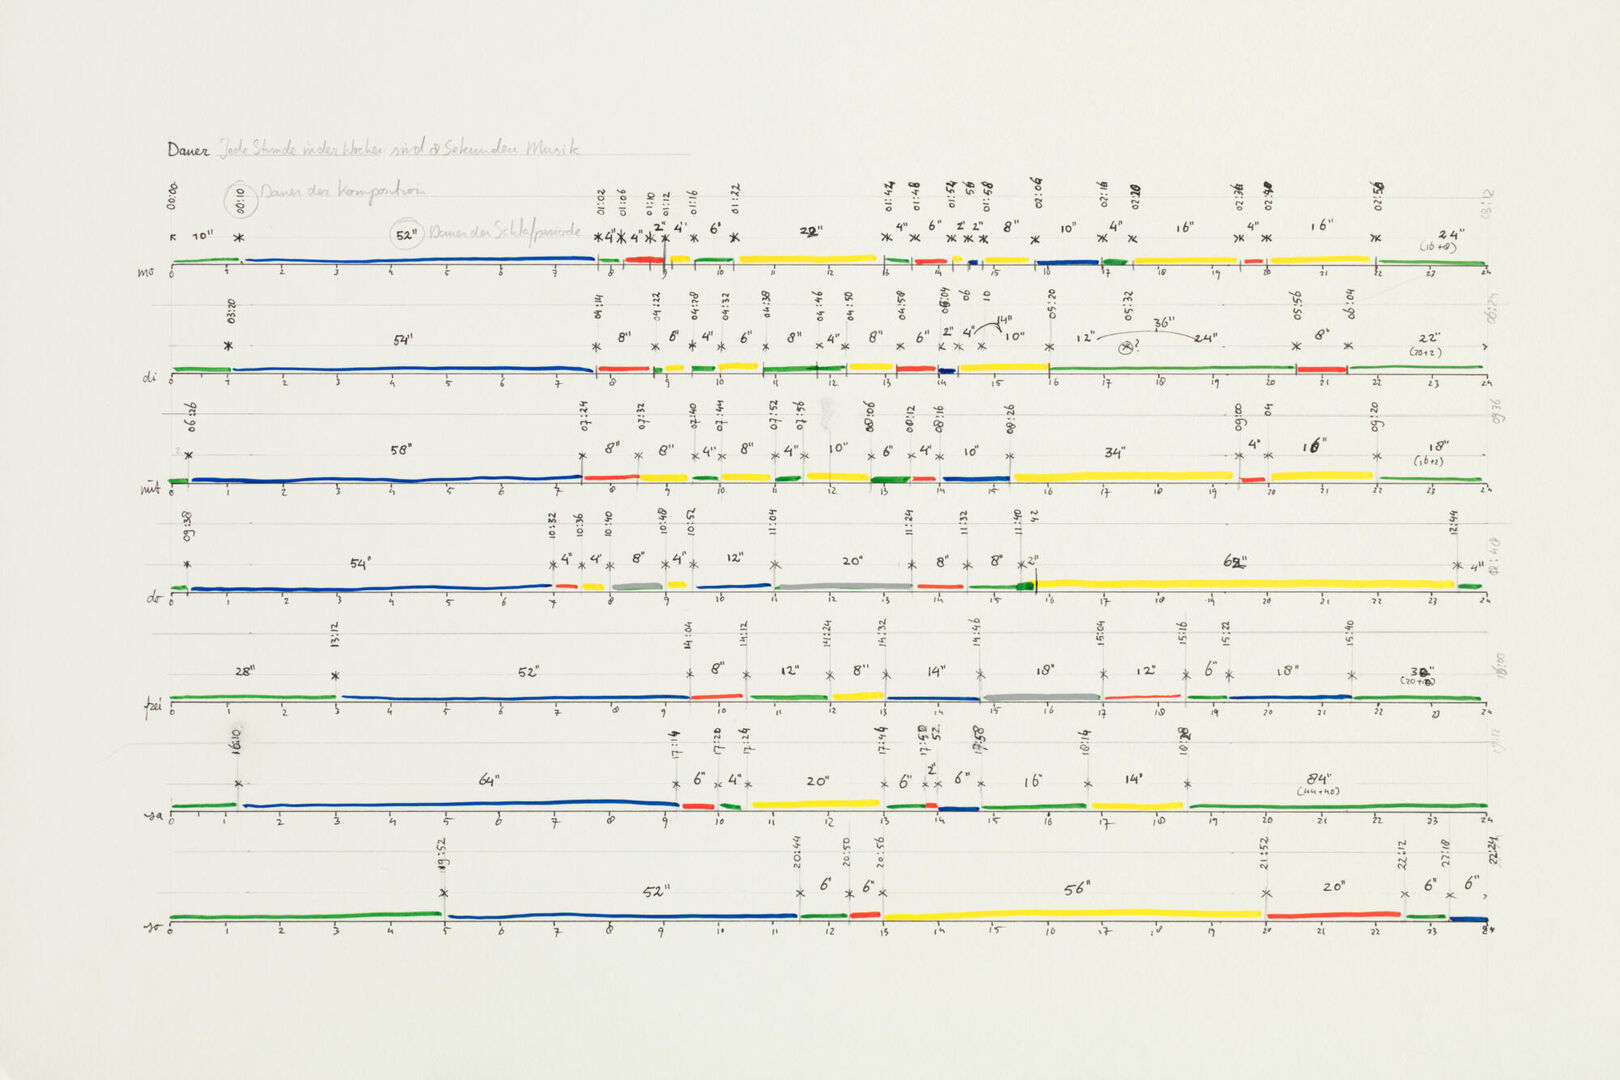 Dauer Jede Stunde in der Woche sind 8 Sekunden Musik
00:00 00:10 Dauer der Komposition 01:02 01:06 01:10 01:12 01:16 01:22 01:42 01:48 01:54 56 01:58 02:06 02:16 02:20 02:36 02:40 02:56 03:12
10" 52" Dauer der Schlafperiode 4" 4" 2" 4" 6" 22" 4" 6" 2" 2" 8" 10" 4" 16" 4" 16" 24"
(16+8)
mo 0 1 2 3 4 5 6 7 8 9 10 11 12 13 14 15 16 17 18 19 20 21 22 23 24
03:20 04:14 04:22 04:28 04:32 04:38 04:46 04:50 04:58 05:04 06 10 05:20 05:32 05:56 06:04 06:24
54" 8" 6" 4" 6" 8" 4" 8" 6" 2" 4" 14" 10" 12" ? 36" 24" 8" 22"
(20+2)
di 0 1 2 3 4 5 6 7 8 9 10 11 12 13 14 15 16 17 18 19 20 21 22 23 24
06:26 07:24 07:32 07:40 07:44 07:52 07:56 08:06 08:12 08:16 08:26 09:00 04 09:20 09:36
58" 8" 8" 4" 8" 4" 10" 6" 4" 10" 34" 4" 16" 18"
(16+2)
mit 0 1 2 3 4 5 6 7 8 9 10 11 12 13 14 15 16 17 18 19 20 21 22 23 24
09:38 10:32 10:36 10:40 10:48 10:52 11:04 11:24 11:32 11:40 42 12:44 12:48
54" 4" 4" 8" 4" 12" 20" 8" 8" 2" 62" 4"
do 0 1 2 3 4 5 6 7 8 9 10 11 12 13 14 15 16 17 18 19 20 21 22 23 24
13:12 14:04 14:12 14:24 14:32 14:46 15:04 15:16 15:22 15:40 16:00
28" 52" 8" 12" 8" 14" 18" 12" 6" 18"
frei 0 1 2 3 4 5 6 7 8 9 10 11 12 13 14 15 16 17 18 19 20 21 22 23 24
16:10 17:14 17:20 17:24 17:44 17:50 52 17:58 18:14 18:28 19:12
64" 6" 4" 20" 6" 2" 6" 16" 14" 84"
(44+40)
sa 0 1 2 3 4 5 6 7 8 9 10 11 12 13 14 15 16 17 18 19 20 21 22 23 24
19:52 20:44 20:50 20:56 21:52 22:12 22:18 22:24
52" 6" 6" 56" 20" 6" 6"
so 0 1 2 3 4 5 6 7 8 9 10 11 12 13 14 15 16 17 18 19 20 21 22 23 24